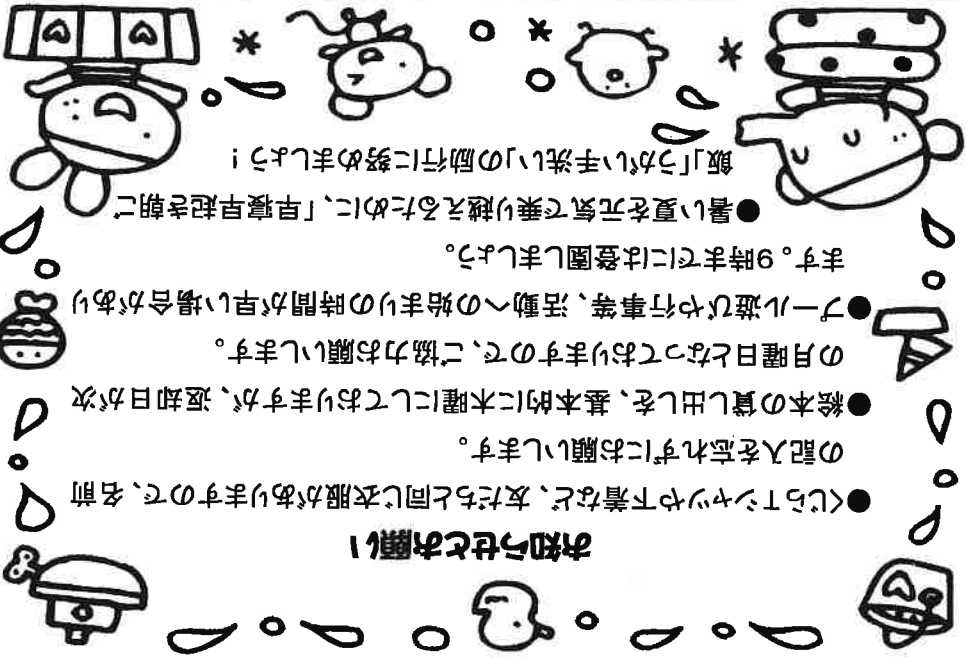 お知らせとお願い
●くじらTシャツや下着など、友だちと同じ衣服がありますので、名前
の記入を忘れずにお願いします。
●絵本の貸し出しを、基本的に木曜にしておりますが、返却日が次
の月曜日となっておりますので、ご協力お願いします。
●プール遊びや行事等、活動への始まりの時間が早い場合があり
ます。9時までには登園しましょう。
●暑い夏を元気で乗り越えるために、「早寝早起き朝ご
飯」「うがい手洗い」の励行に努めましょう！